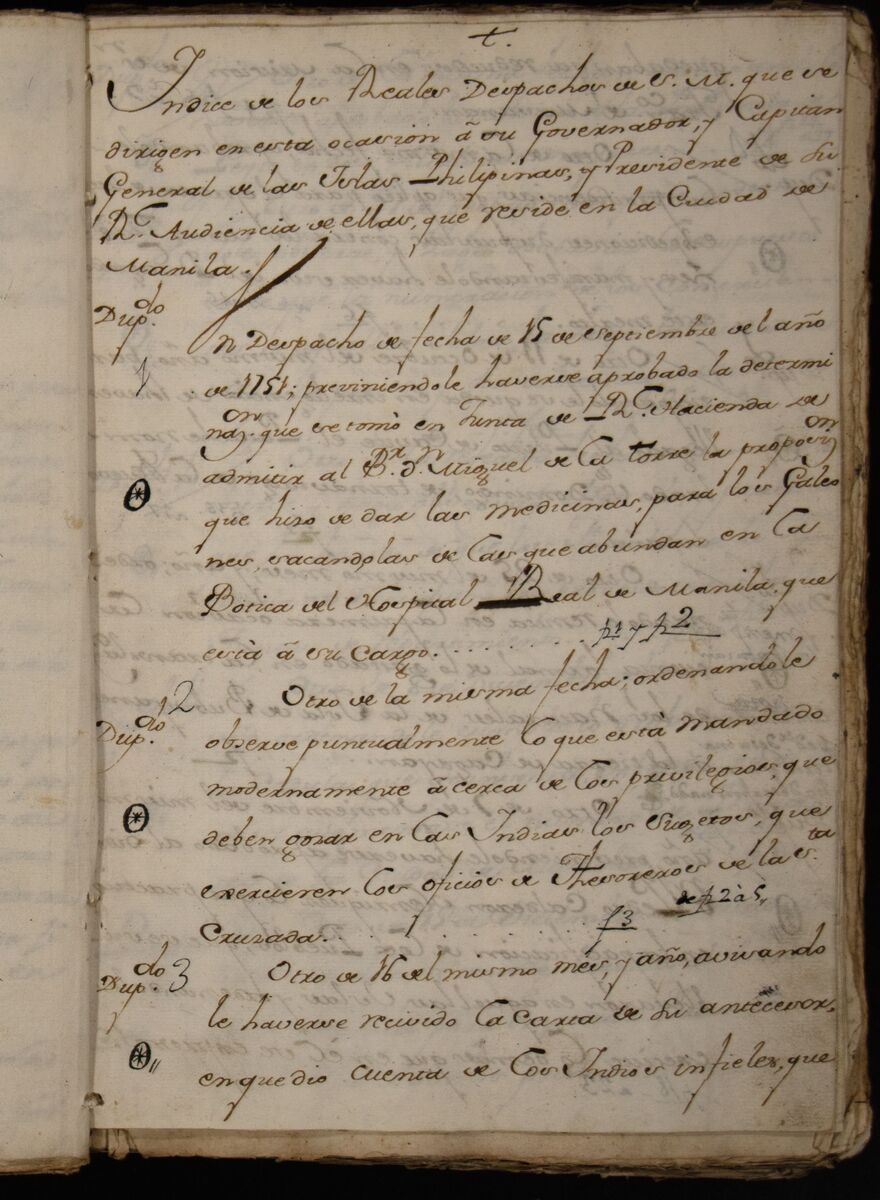 +.
Indice de los Reales Despachos de S. M. que se
dirigen en esta ocasion â su Governador, y Capitan
General de las Islas Philipinas, y Presidente de su
Rl. Audiencia de ellas, que reside en la Ciudad de
Manila.
Dupdo.
1
Un Despacho de fecha de 15 de Septiembre del año
de 1751; previniendole haverse aprobado la determi
nazon. que se tomò en Junta de Rl. Hacienda de
admitir al Br. dn. Miguel de la Torre la proposizon
que hizo de dar las medicinas, para los Galeo
nes, sacandolas de las que abundan en la
Botica del Hospital Real de Manila, que
està â su cargo. . . . . . . . . . f1 y f2
Dupdo. 2
Otro de la misma fecha; ordenandole
observe puntualmente lo que està mandado
modernamente â cerca de los privilegios, que
deben gozar en las Indias los Sugetos, que
exercieren los oficios de Thesoreros de la Sta.
Cruzada. . . . . . . . . f3 de f2 à 5,,
Dupdo. 3
Otro de 16 del mismo mes, y año, avisando
le haverse recivido la carta de su antecesor,
en que dio cuenta de los Indios infieles, que